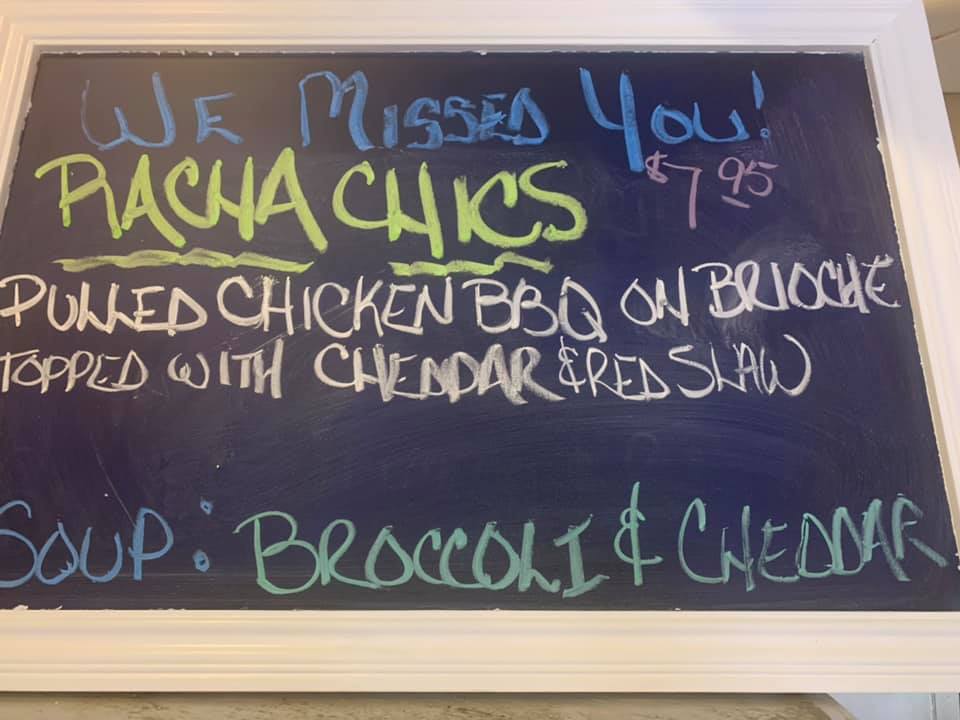 WE MISSED YOU!
RACHA CHICS $7.95
PULLED CHICKEN BBQ ON BRIOCHE
TOPPED WITH CHEDDAR & RED SLAW
SOUP: BROCCOLI & CHEDDAR